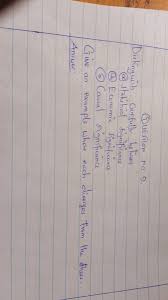 Question no. 9
Distinguish carefully between
(a) Statistical significance
(b) Economic significance
(c) Causal significance
Give an example where each diverges from the other.
Answer